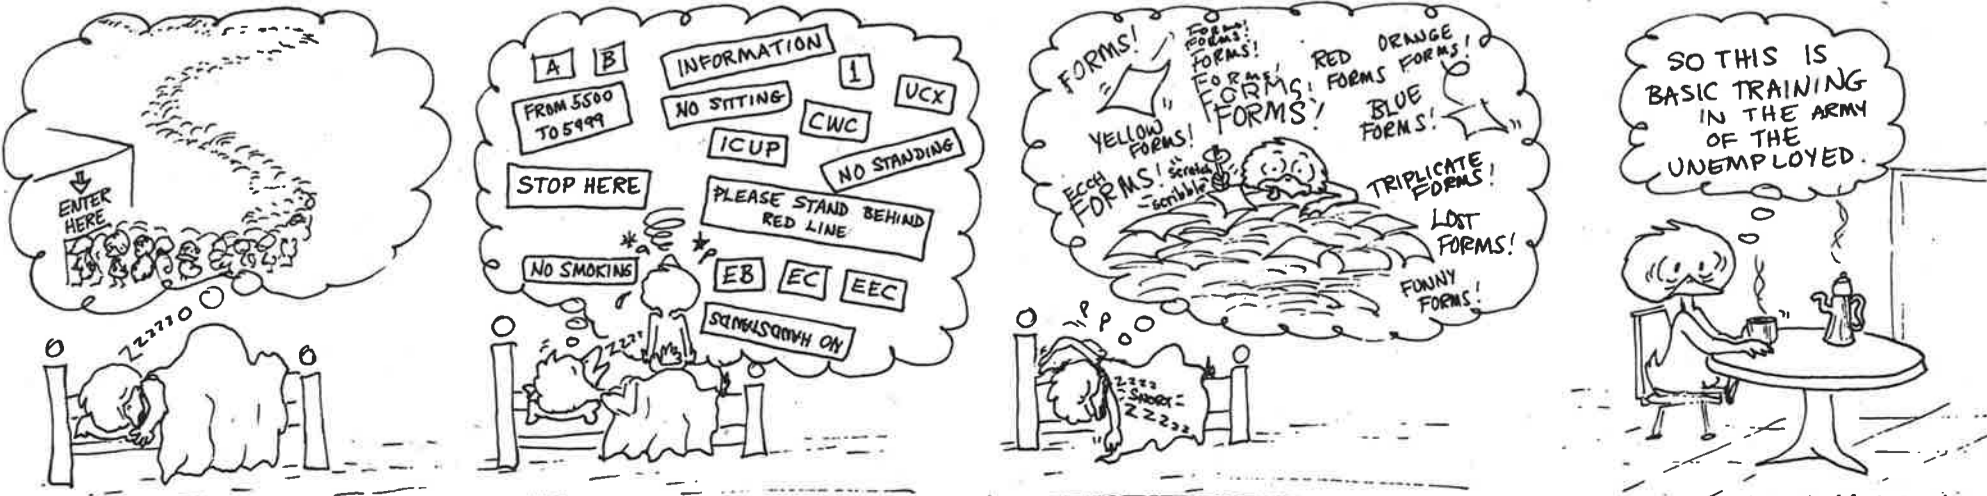 ENTER
HERE
ZZZZZ
A
B
INFORMATION
1
UCX
FROM 5500
TO 5999
NO SITTING
CWC
ICUP
NO STANDING
STOP HERE
PLEASE STAND BEHIND
RED LINE
NO SMOKING
EB
EC
EEC
NO HANDSTANDS
ZZZZ
FORMS!
FORMS!
FORMS!
FORMS!
FORMS!
FORMS!
FORMS!
RED
FORMS
ORANGE
FORMS!
YELLOW
FORMS!
BLUE
FORMS!
ECCH
FORMS!
scratch
scribble
TRIPLICATE
FORMS!
LOST
FORMS!
FUNNY
FORMS!
ZZZZ
-SNORT-
ZZZZZ
SO THIS IS
BASIC TRAINING
IN THE ARMY
OF THE
UNEMPLOYED.